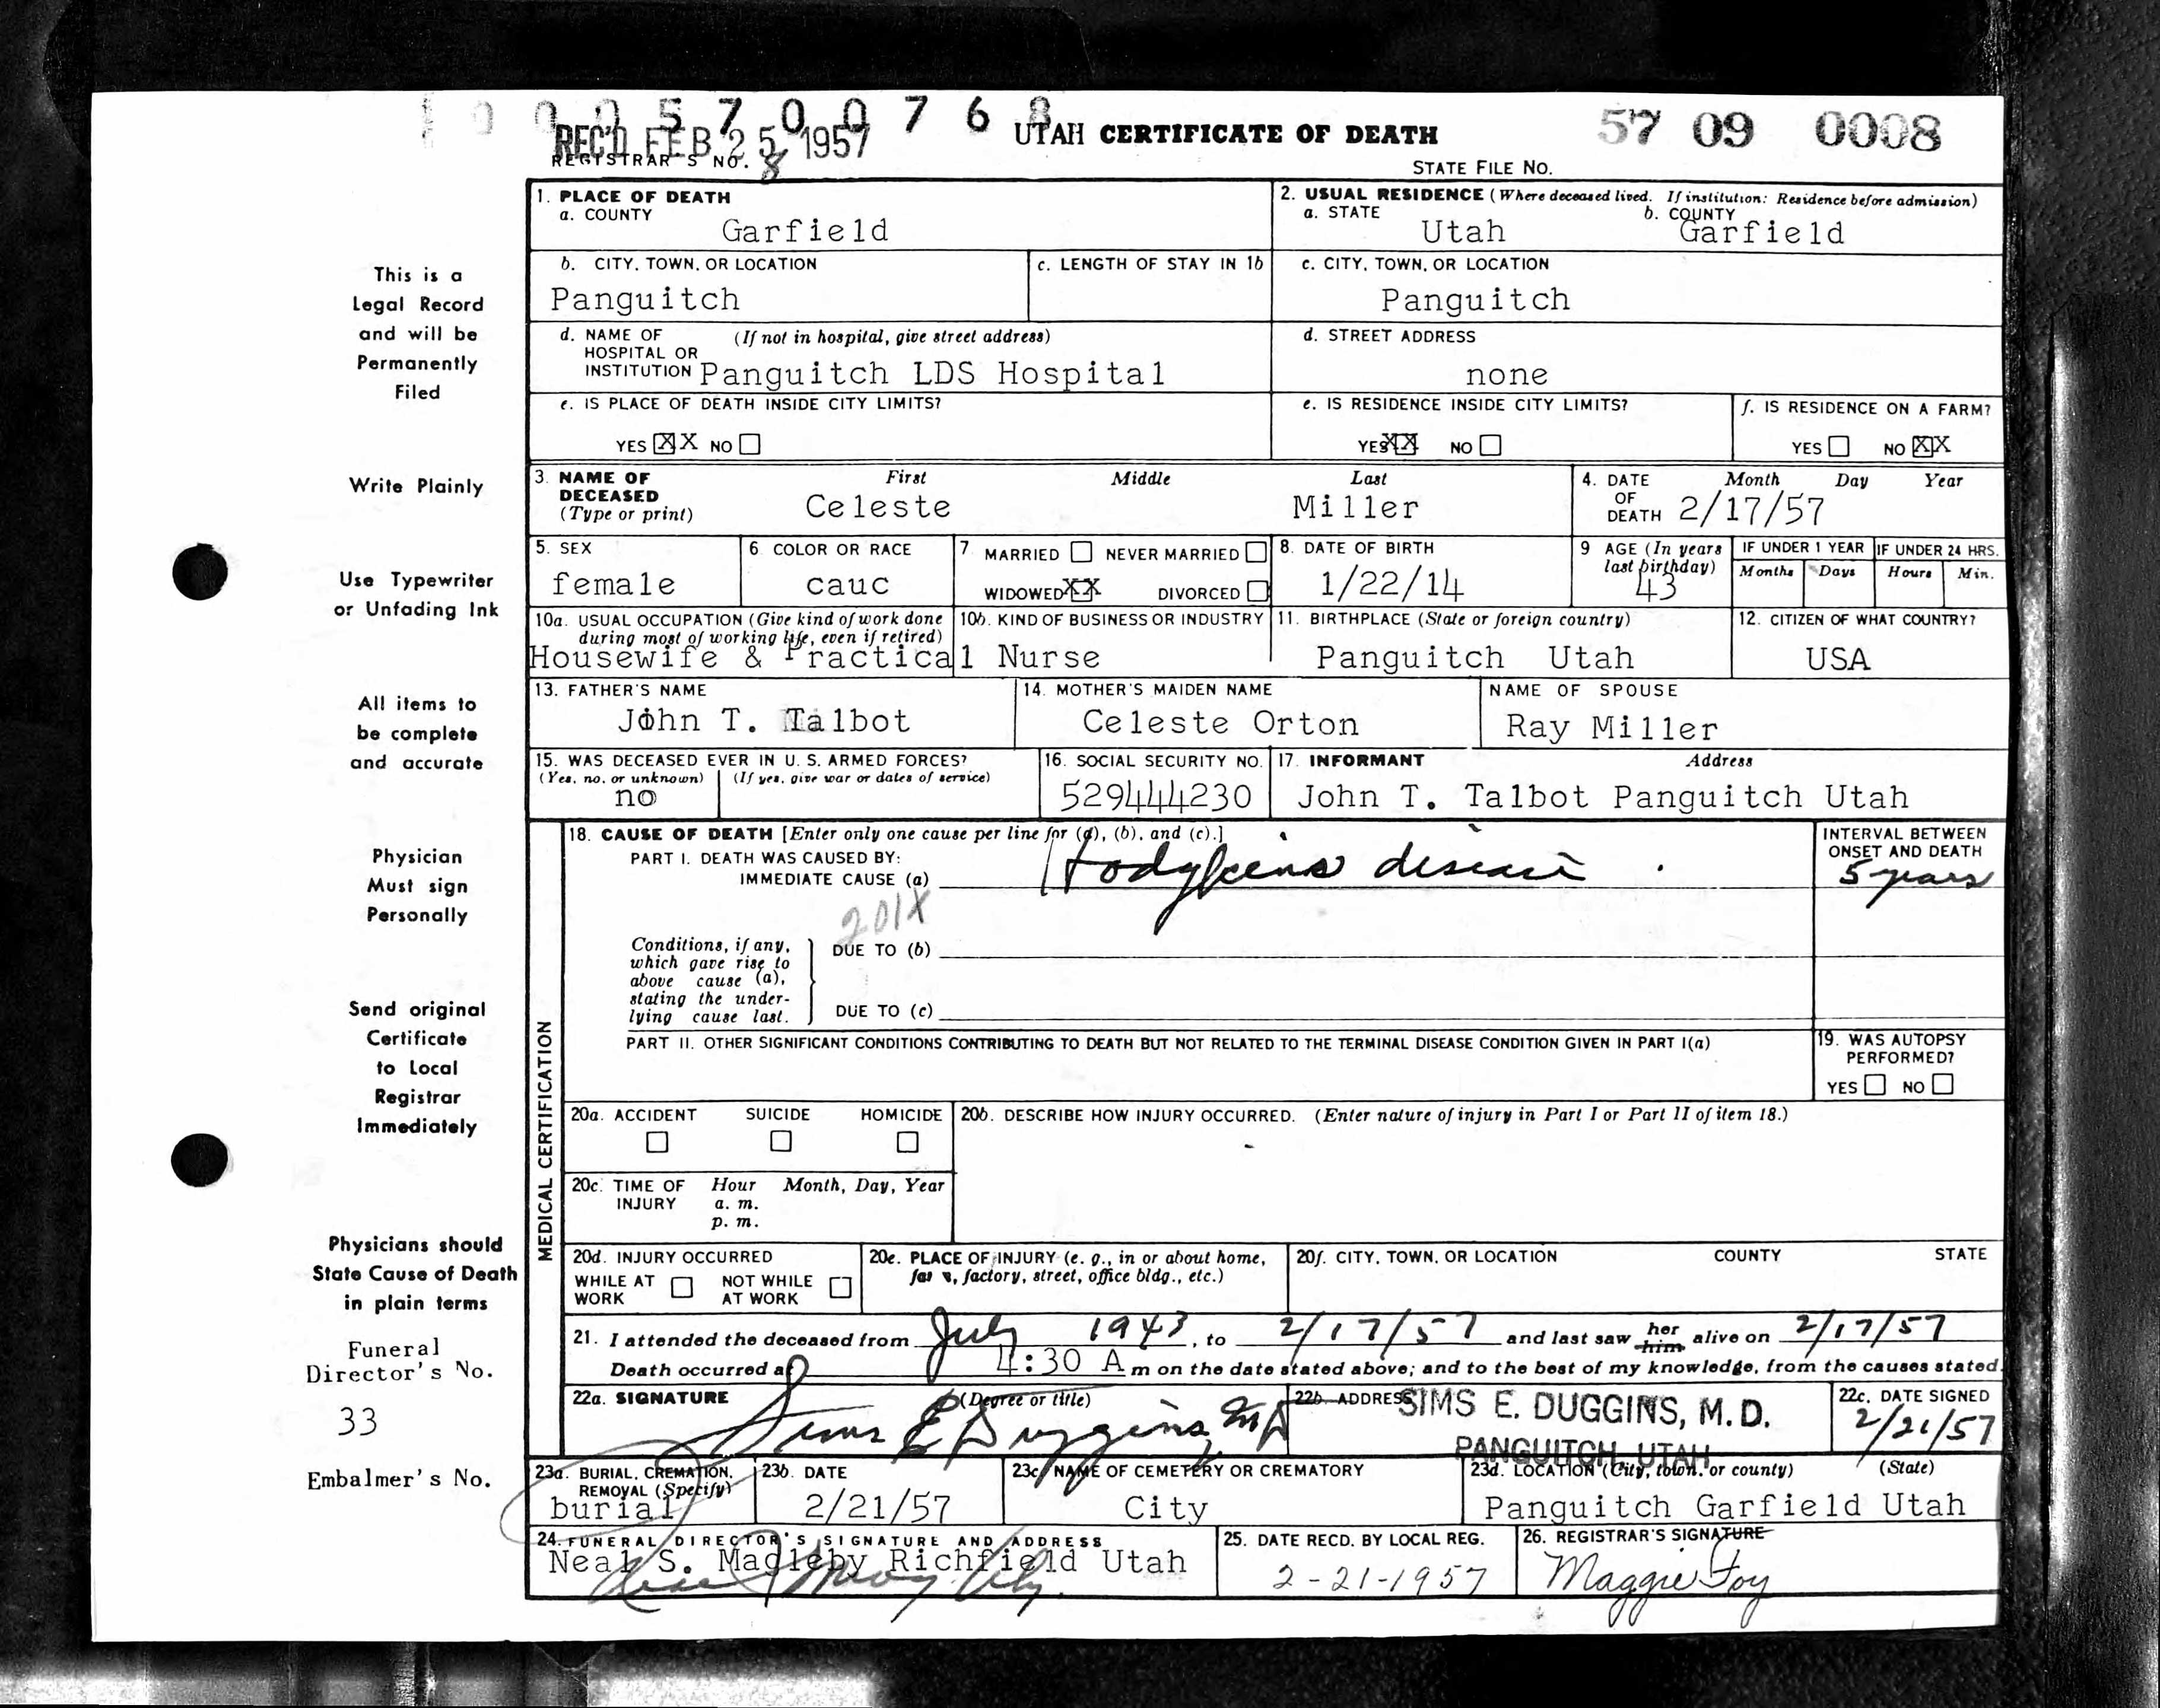 1 0 0 0 5 7 0 0 7 6 8
REC'D FEB 25 1957
UTAH CERTIFICATE OF DEATH
57 09 0008
REGISTRAR'S NO. 8
STATE FILE NO.
1. PLACE OF DEATH
a. COUNTY
Garfield
2. USUAL RESIDENCE (Where deceased lived. If institution: Residence before admission)
a. STATE
Utah
b. COUNTY
Garfield
b. CITY, TOWN, OR LOCATION
Panguitch
c. LENGTH OF STAY IN 1b
c. CITY, TOWN, OR LOCATION
Panguitch
d. NAME OF (If not in hospital, give street address)
HOSPITAL OR
INSTITUTION Panguitch LDS Hospital
d. STREET ADDRESS
none
e. IS PLACE OF DEATH INSIDE CITY LIMITS?
YES XX NO
e. IS RESIDENCE INSIDE CITY LIMITS?
YES XX NO
f. IS RESIDENCE ON A FARM?
YES NO XX
3. NAME OF
DECEASED
(Type or print)
First
Celeste
Middle
Last
Miller
4. DATE
OF
DEATH
Month Day Year
2/17/57
5. SEX
female
6 COLOR OR RACE
cauc
7 MARRIED NEVER MARRIED
WIDOWED XX DIVORCED
8. DATE OF BIRTH
1/22/14
9 AGE (In years
last birthday)
43
IF UNDER 1 YEAR
Months Days
IF UNDER 24 HRS.
Hours Min.
10a. USUAL OCCUPATION (Give kind of work done
during most of working life, even if retired)
10b. KIND OF BUSINESS OR INDUSTRY
Housewife & Practical Nurse
11. BIRTHPLACE (State or foreign country)
Panguitch Utah
12. CITIZEN OF WHAT COUNTRY?
USA
13. FATHER'S NAME
John T. Talbot
14. MOTHER'S MAIDEN NAME
Celeste Orton
NAME OF SPOUSE
Ray Miller
15. WAS DECEASED EVER IN U. S. ARMED FORCES?
(Yes, no, or unknown) (If yes, give war or dates of service)
no
16. SOCIAL SECURITY NO.
529444230
17. INFORMANT Address
John T. Talbot Panguitch Utah
MEDICAL CERTIFICATION
18. CAUSE OF DEATH [Enter only one cause per line for (a), (b), and (c).]
PART I. DEATH WAS CAUSED BY:
IMMEDIATE CAUSE (a) Hodgkens disease
INTERVAL BETWEEN
ONSET AND DEATH
5 years
201X
Conditions, if any,
which gave rise to
above cause (a),
stating the under-
lying cause last.
DUE TO (b)
DUE TO (c)
PART II. OTHER SIGNIFICANT CONDITIONS CONTRIBUTING TO DEATH BUT NOT RELATED TO THE TERMINAL DISEASE CONDITION GIVEN IN PART I(a)
19. WAS AUTOPSY
PERFORMED?
YES NO
20a. ACCIDENT SUICIDE HOMICIDE
20b. DESCRIBE HOW INJURY OCCURRED. (Enter nature of injury in Part I or Part II of item 18.)
20c. TIME OF Hour Month, Day, Year
INJURY a. m.
p. m.
20d. INJURY OCCURRED
WHILE AT NOT WHILE
WORK AT WORK
20e. PLACE OF INJURY (e. g., in or about home,
factory, street, office bldg., etc.)
20f. CITY, TOWN, OR LOCATION COUNTY STATE
21. I attended the deceased from July 1943, to 2/17/57 and last saw her him alive on 2/17/57
Death occurred at 4:30 A m on the date stated above; and to the best of my knowledge, from the causes stated.
22a. SIGNATURE (Degree or title)
Sims E Duggins, MD
22b ADDRESS
SIMS E. DUGGINS, M.D.
PANGUITCH, UTAH
22c. DATE SIGNED
2/21/57
23a. BURIAL, CREMATION,
REMOVAL (Specify)
burial
23b. DATE
2/21/57
23c. NAME OF CEMETERY OR CREMATORY
City
23d. LOCATION (City, town, or county) (State)
Panguitch Garfield Utah
24. FUNERAL DIRECTOR'S SIGNATURE AND ADDRESS
Neal S. Magleby Richfield Utah
Neal S Magleby
25. DATE RECD. BY LOCAL REG.
2-21-1957
26. REGISTRAR'S SIGNATURE
Maggie Foy
This is a
Legal Record
and will be
Permanently
Filed
Write Plainly
Use Typewriter
or Unfading Ink
All items to
be complete
and accurate
Physician
Must sign
Personally
Send original
Certificate
to Local
Registrar
Immediately
Physicians should
State Cause of Death
in plain terms
Funeral
Director's No.
33
Embalmer's No.